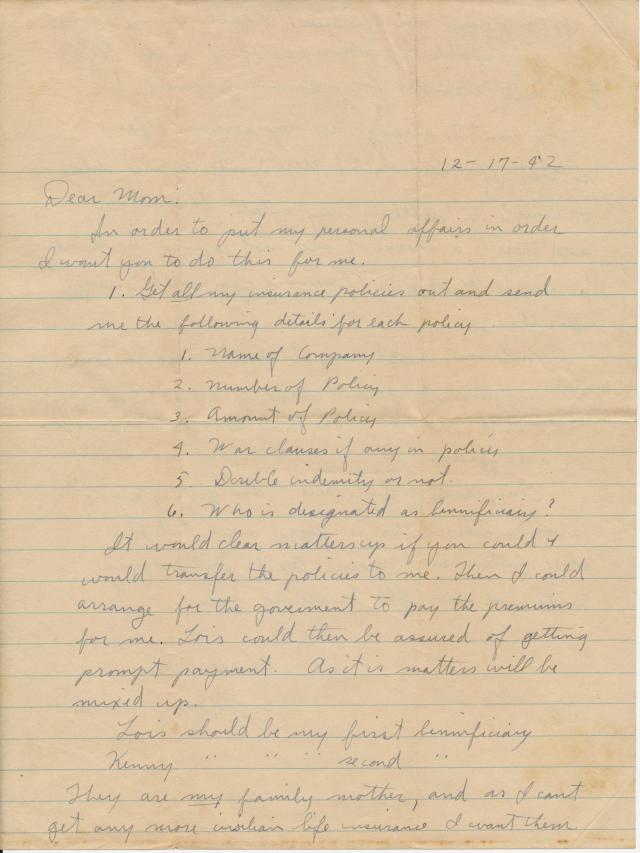 12-17-42
Dear Mom:
In order to put my personal affairs in order
I want you to do this for me.
1. Get all my insurance policies out and send
me the following details for each policy
1. Name of Company
2. Number of Policy
3. Amount of Policy
4. War clauses if any in policy
5. Double indemnity or not.
6. Who is designated as bennificiary?
It would clear matters up if you could &
would transfer the policies to me. Then I could
arrange for the goverment to pay the premiums
for me. Lois could then be assured of getting
prompt payment. As it is matters will be
mixed up.
Lois should be my first bennificiary
Kenny " " " second "
They are my family mother, and as I cant
get any more civilian life insurance I want them